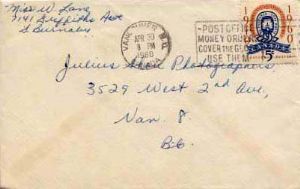 Miss W Lang
7141 Griffiths Ave
S Burnaby
VANCOUVER B.C.
APR 20
8 PM
1960
CANADA
POST OFFICE
MONEY ORDERS
COVER THE GLOBE
USE THEM
1910 1960
CANADA
5
Julius Photographers
3529 West 2nd Ave
Van. 8
B.C.